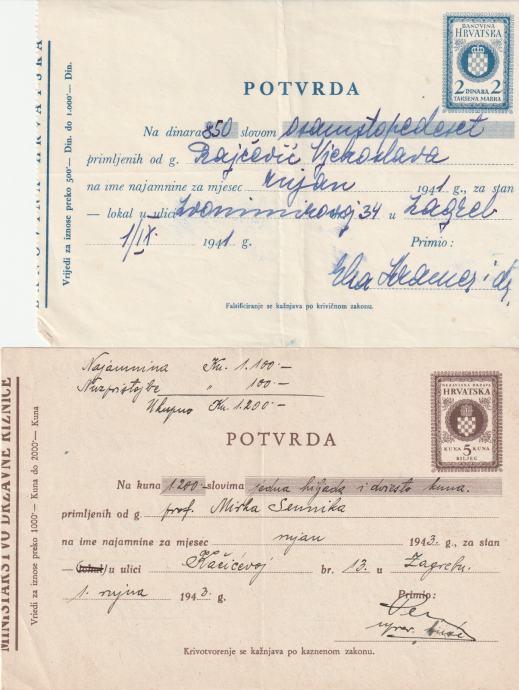 BANOVINA HRVATSKA
Vrijedi za iznose preko 500'— Din. do 1.000'— Din.
BANOVINA
HRVATSKA
2 DINARA 2
TAKSENA MARKA
POTVRDA
Na dinara 850 slovom osamstopedeset
primljenih od g. Rajčević Vjekoslava
na ime najamnine za mjesec rujan 1941 g., za stan
— lokal u ulici Zvonimirovoj 34 u Zagreb
1/IX. 1941 g. Primio:
Elsa
Falsificiranje se kažnjava po krivičnom zakonu.
MINISTARSTVO DRŽAVNE RIZNICE
Vriedi za iznose preko 1000'— Kuna do 2000'— Kuna
Najamnina Kn. 1.100.—
Nuzpristojbe " 100.—
Ukupno Kn. 1.200.—
NEZAVISNA DRŽAVA
HRVATSKA
KUNA 5 KUNA
BILJEG
POTVRDA
Na kuna 1200.— slovima jedna hiljada i dvjesto kuna.
primljenih od g. prof. Mirka Sennika
na ime najamnine za mjesec rujan 1943. g., za stan
— lokal u ulici Kačićevoj br. 13. u Zagrebu.
1. rujna 1943. g. Primio:
uprav. kuće
Krivotvorenje se kažnjava po kaznenom zakonu.